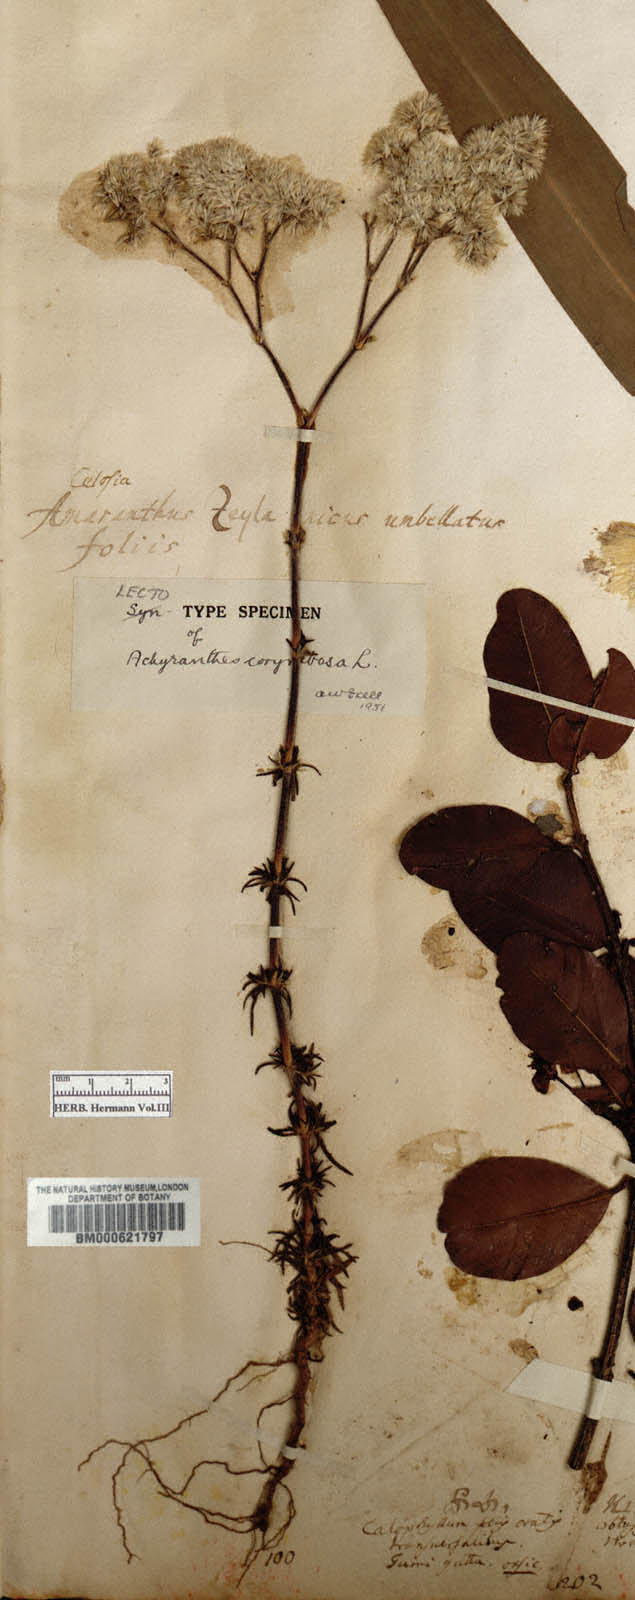 Celosia
Amaranthus Zeylanicus umbellatus
foliis
LECTO
Syn- TYPE SPECIMEN
of
Achyranthes corymbosa L.
1951
mm 1 2 3
HERB. Hermann Vol.III
THE NATURAL HISTORY MUSEUM, LONDON
DEPARTMENT OF BOTANY
BM000621797
Calophyllum
Gummi gutta. offic.
100
202